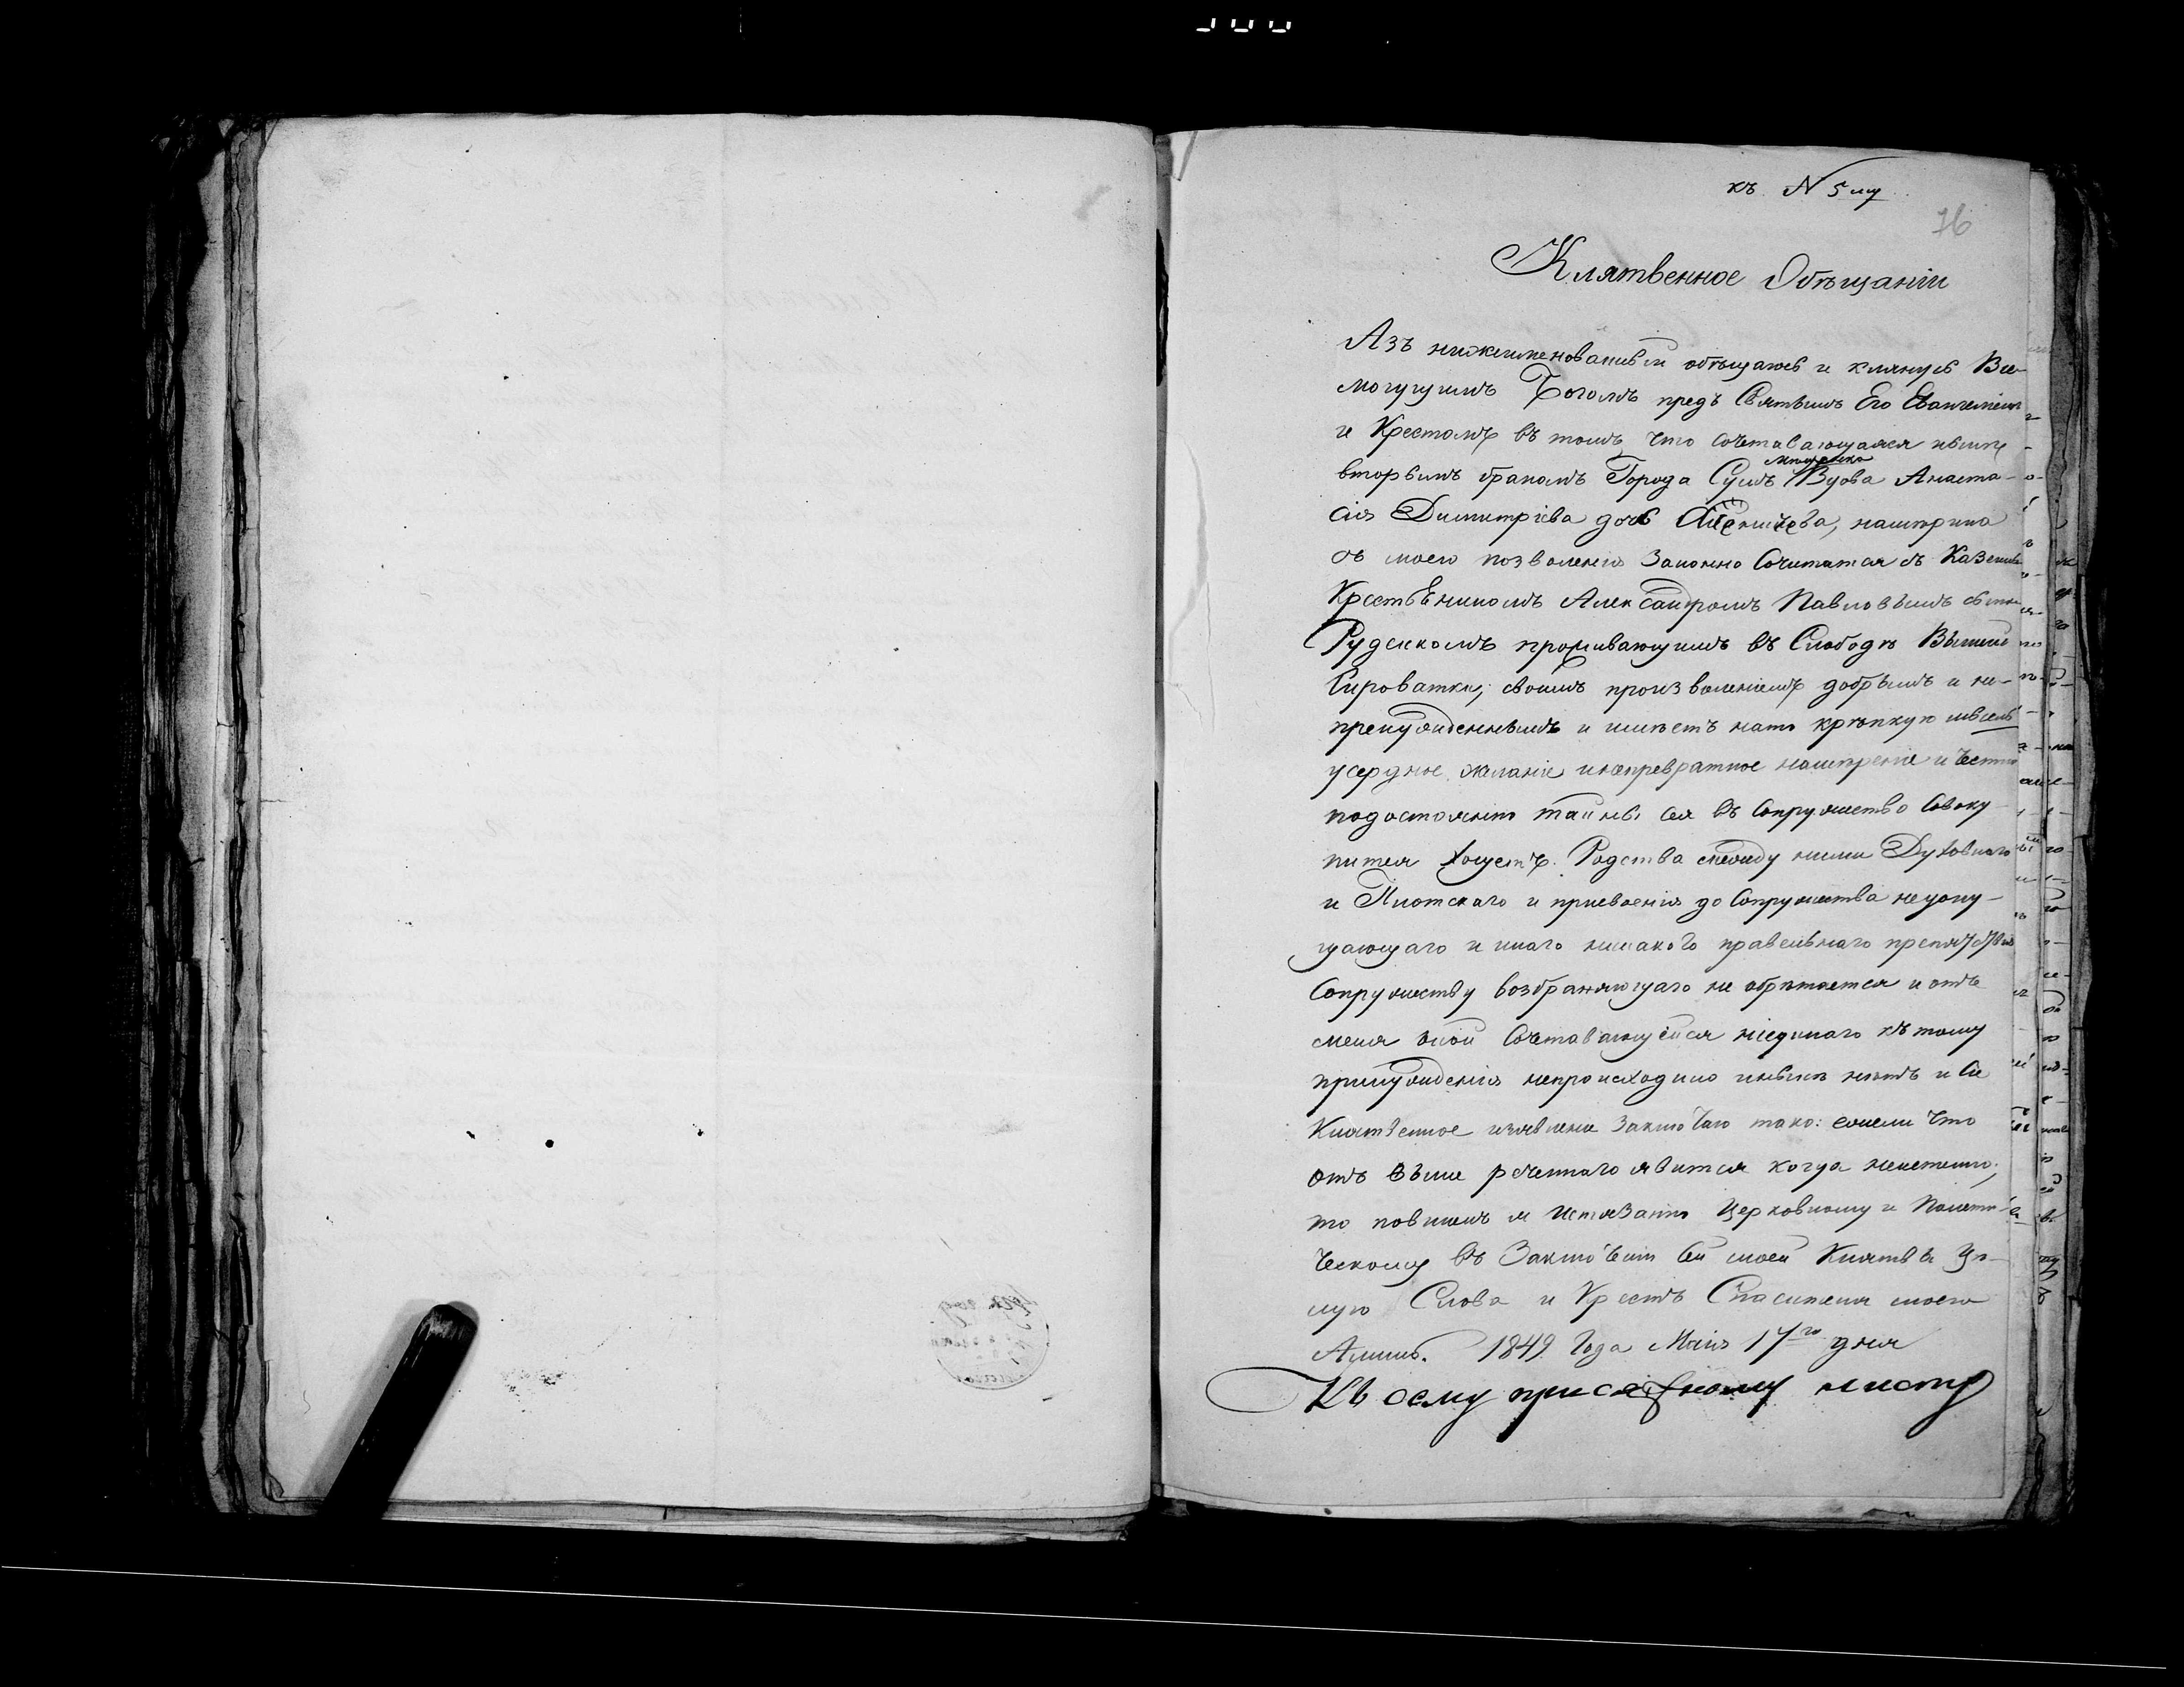 къ N 5му
76
Клятвенное Обѣщаніи
Азъ нижеименованный обѣщаюсь и клянусь Все-
могущимъ Богомъ предъ Святымъ Его Евангеліем
и Крестомъ въ томъ, что сочетавающаяся нынѣ
вторымъ бракомъ Города Сумъ Вдова Анаста-
сія Димитріева дочь намѣрина
съ моего позволенія Законно Сочитатся съ Казеннымъ
КрестьЕниномъ Александромъ Павловымъ сыномъ
Руденкомъ проживающимъ въ Слободѣ Вышней
Сироватки, своимъ произволеніемъ добрымъ и не-
пренужденнымъ и имѣетъ нато крѣпкую мысль
усердное желаніе инепревратное намѣреніе и Честно
подостоянію тайны сея въ Сопружество Совоку-
питея хощетъ. Родства между ними Духовнаго
и Плотскаго и присвоенія до Сопружества недопу-
щающаго и инаго никакого правельнаго препятствія
Сопружеству возбраняющаго не обрѣтается и отъ
меня оной Сочетавающейся ніединаго къ тому
принужденія непроисходило инынѣ нѣтъ и Сіе
Клятвенное изявлене Заключаю тако: ежели что
отъ выше реченнаго явится когда неистенно;
то повиненъ я Истязанію Церковному и Полити-
ческому въ Заключеніи Сей моей Клятвы Цѣ-
лую Слова и Крестъ Спасителя моего
Аминь. 1849 Года Маія 17го дня
Къ сему присяжному листу